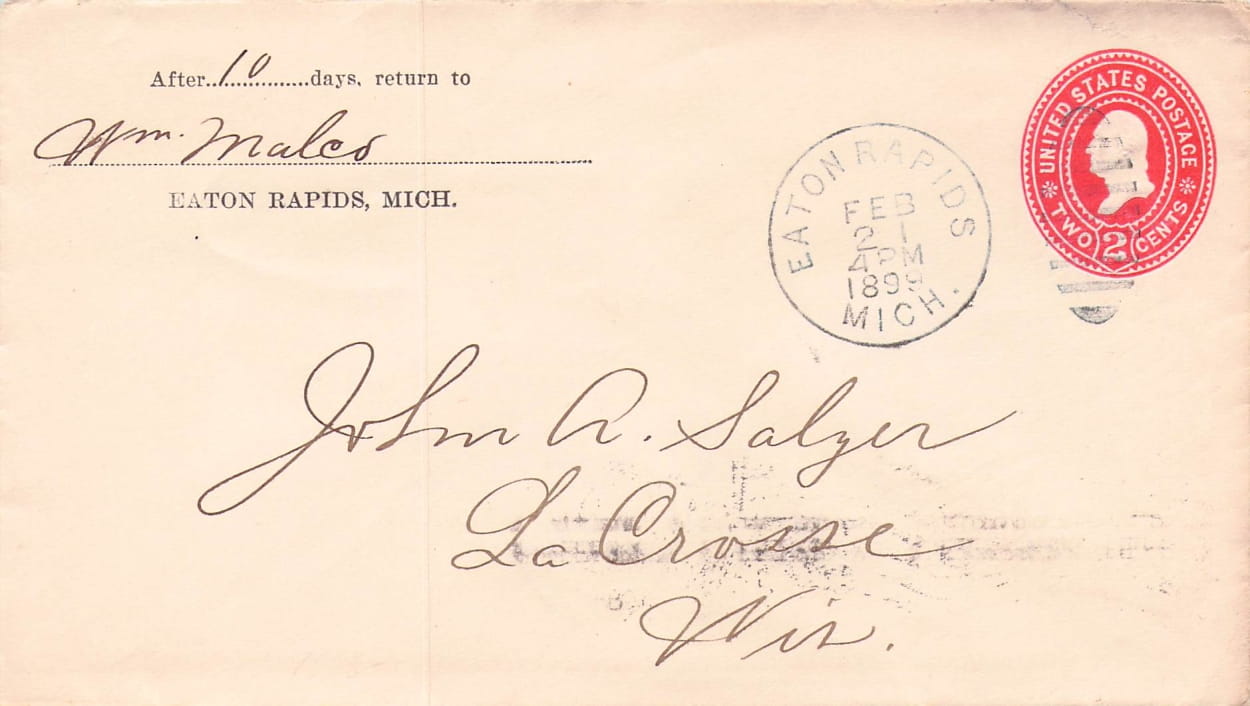 After..10...............days, return to
Wm. Malco
EATON RAPIDS, MICH.
EATON RAPIDS
FEB
21
4 PM
1899
MICH.
UNITED STATES POSTAGE
TWO 2 CENTS
John A. Salzer
La Crosse
Wis.